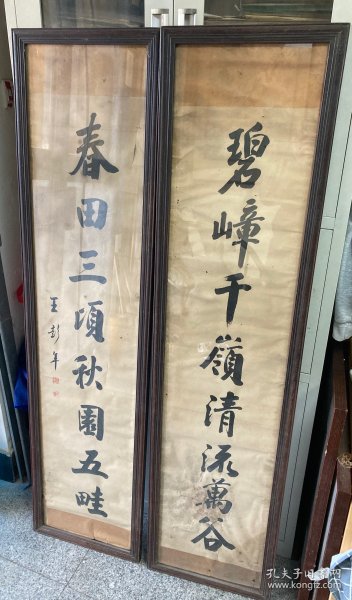 碧嶂千嶺清流萬谷
春田三頃秋園五畦
王彭年
孔夫子旧书网
www.kongfz.com